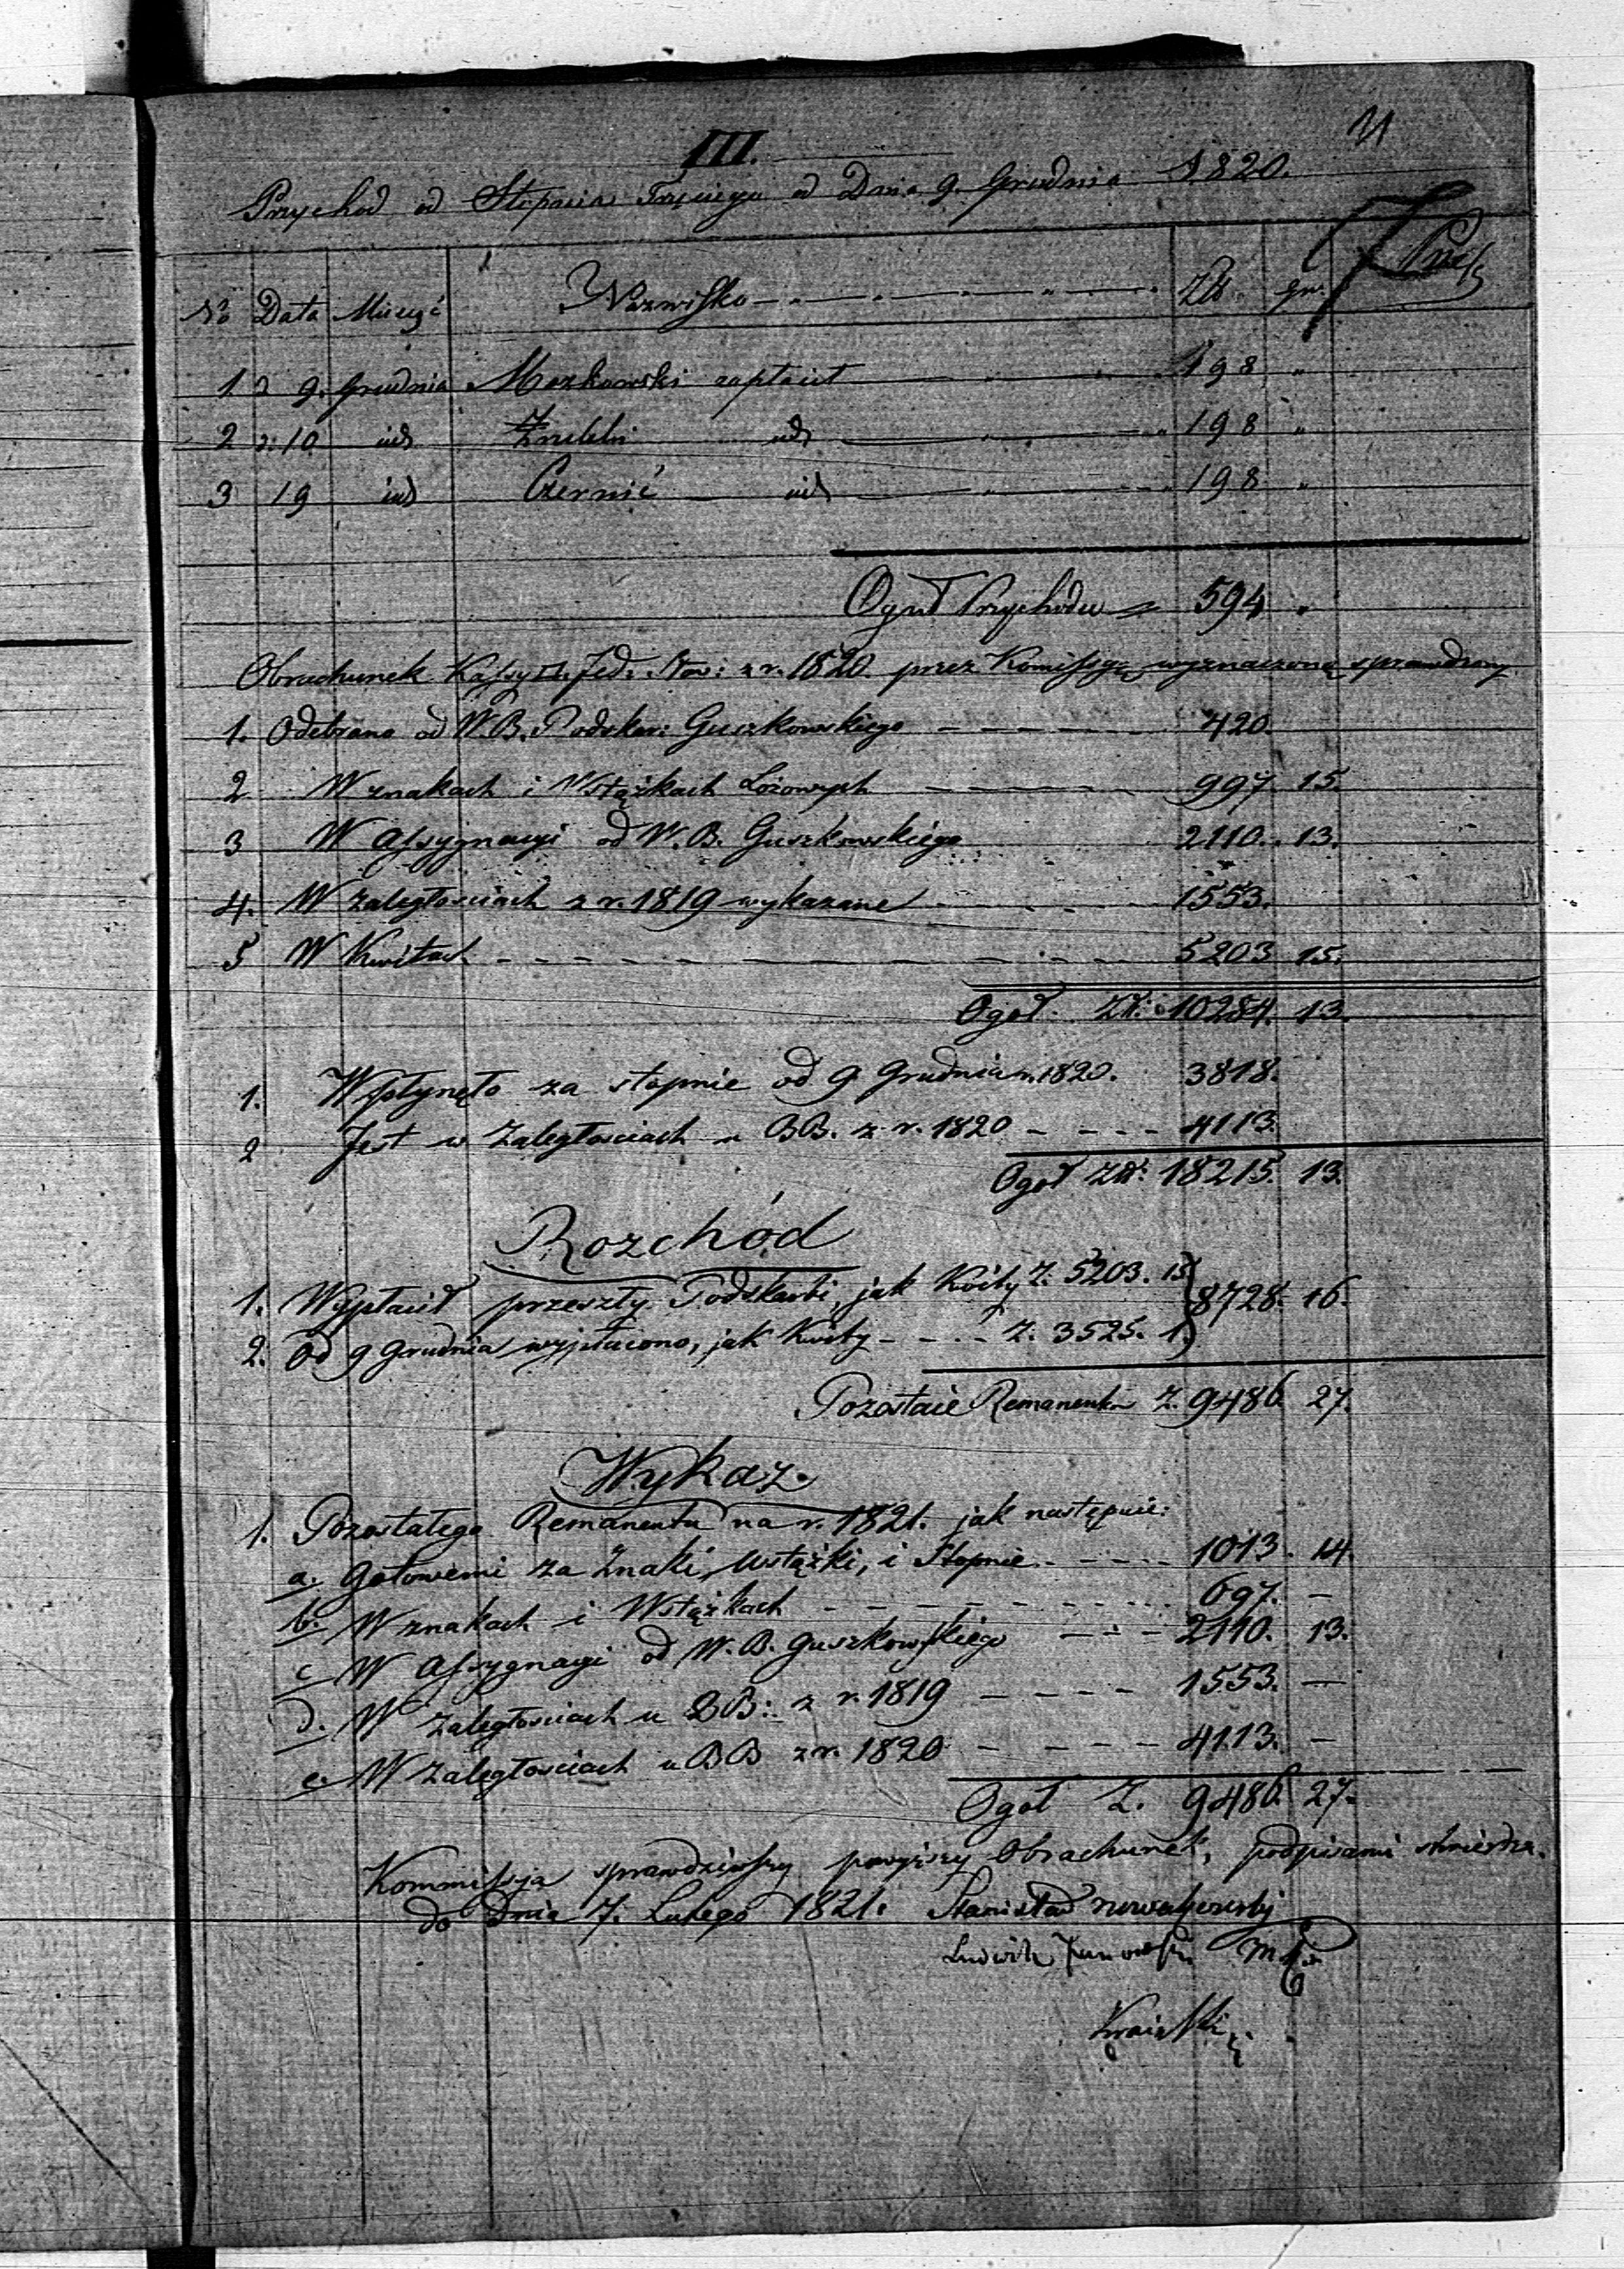 III.
Przychod od Stopnia Trzeciego od Dnia 9. Grudnia 1820.
No Data Miesiąc Nazwisko Zło. gr.
1 d 9. Grudnia Mozkowski zapłacił 198 "
2 d. 10 id 198 "
3 19 id Czernic id 198 "
Oguł Przychodu 594 "
Obrachunek Kassy Jed. Now: z r. 1820. przez Komissyą wyznaczoną sprawdzony
1. Odebrano od W. B. Podskar: Guszkowskiego - - - - - 420.
2 W znakach i Wstążkach Lożowych - - - - - 997. 15.
3 W Assygnacyi od W. B. Guszkowskiego 2110. 13.
4. W zaległosciach z r. 1819 wykazane - - - - 1553.
5 W Kwitach - - - - - - - - 5203 15.
Ogoł. Zł: 10284. 13.
1. Wpłynęło za stopnie od 9 Grudnia r. 1820. 3818.
2 Jest w Zaległosciach u BB. z r. 1820 - - - - 4113.
Ogoł Zł: 18215. 13.
Rozchód
1. Wypłacił przeszły Podskarbi, jak Kwity Z. 5203. 15 } 8728. 16.
2. Od 9 Grudnia wypłacono, jak Kwity - - - - Z. 3525. 1.
Pozostaie Remanentu Z. 9486 27.
Wykaz.
1. Pozostałego Remanentu na r. 1821. jak następuie:
a. Gotowemi za Znaki, Wstążki, i Stopnie - - - - - 1013. 14.
b. W znakach i Wstążkach - - - - - - - - 697. -
c W Assygnacyi od W. B. Guszkowskiego - - - 2110. 13.
d. W Zaległosciach u BB: z r. 1819 - - - - 1553. -
e. W Zaległosciach u BB z r. 1820 - - - - 4113. -
Ogoł Z. 9486 27.
Kommissja sprawdziwszy powyższy Obrachunek, podpisami stwierdza.
do Dnia 7. Lutego 1821. Stanisław
Ludwik